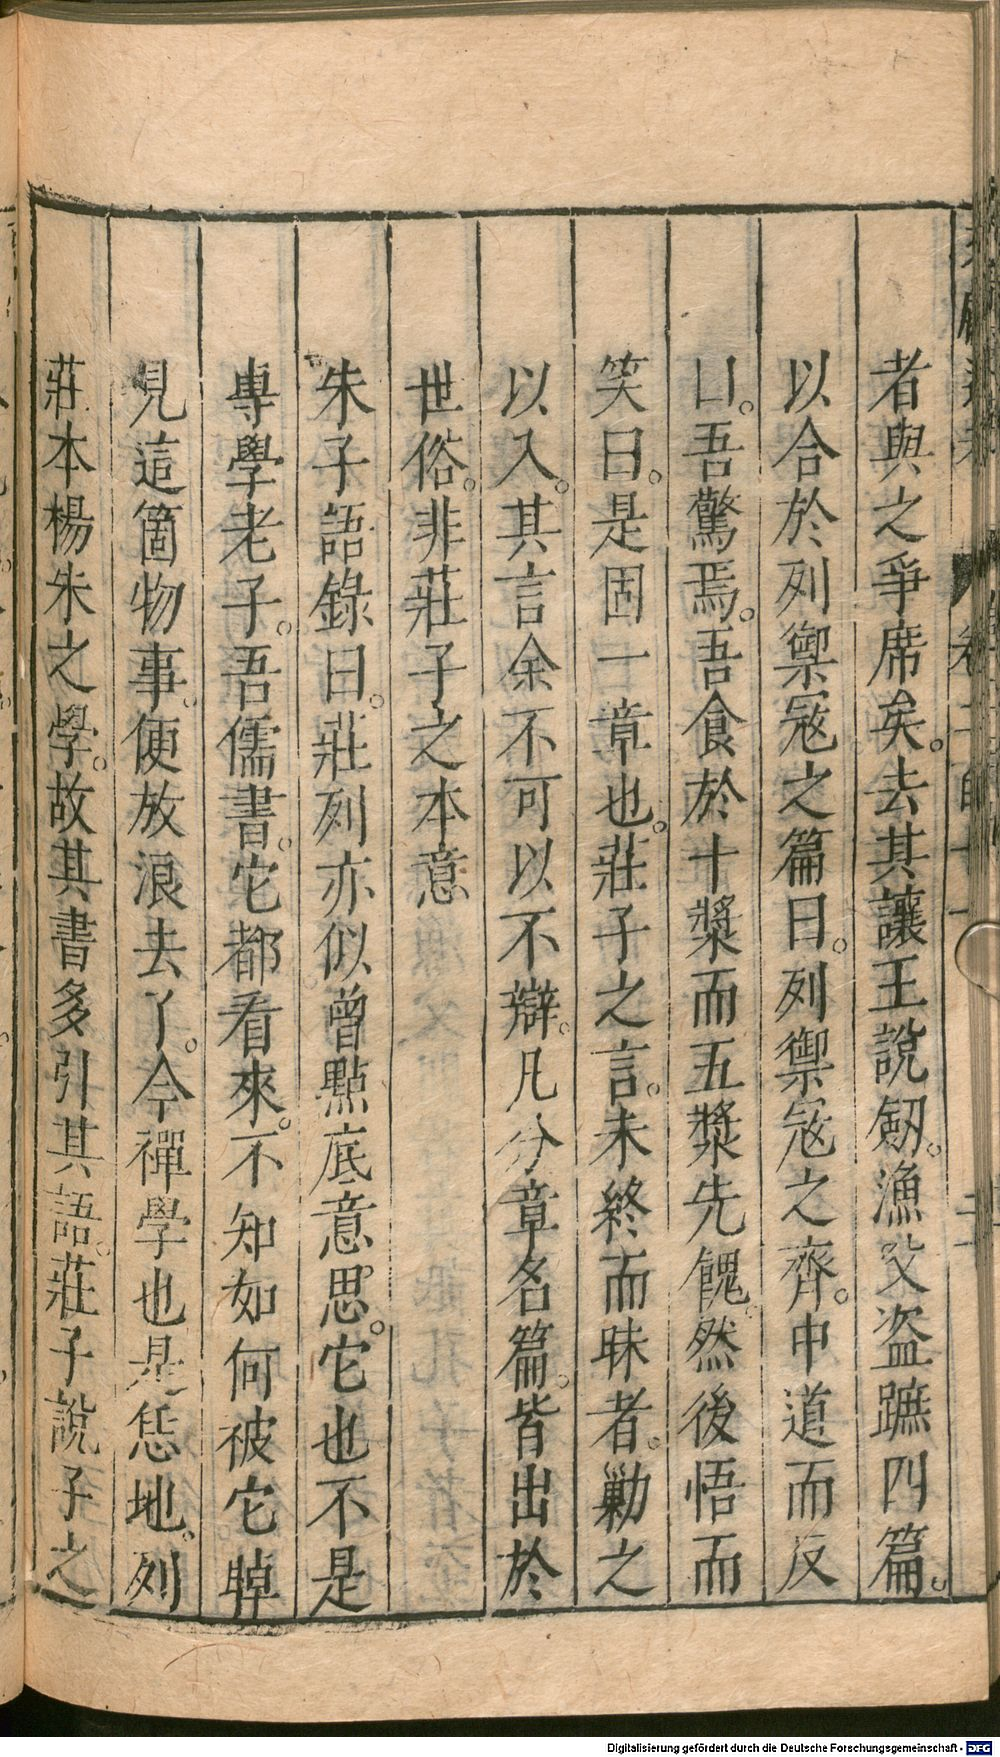 者與之爭席矣。去其讓王說劒。漁父盜蹠四篇。
以合於列禦寇之篇曰。列禦寇之齊。中道而反
曰。吾驚焉。吾食於十漿而五漿先餽。然後悟而
笑曰。是固一章也。莊子之言。未終而昧者。勦之
以入。其言余不可以不辯。凡分章名篇。皆出於
世俗。非莊子之本意
朱子語錄曰。莊列亦似曾點底意思。它也不是
專學老子。吾儒書。它都看來。不知如何被它晫
見這箇物事。便放浪去了。今禪學也是恁地。列
莊本楊朱之學。故其書多引其語。莊子說子之
Digitalisierung gefördert durch die Deutsche Forschungsgemeinschaft - DFG